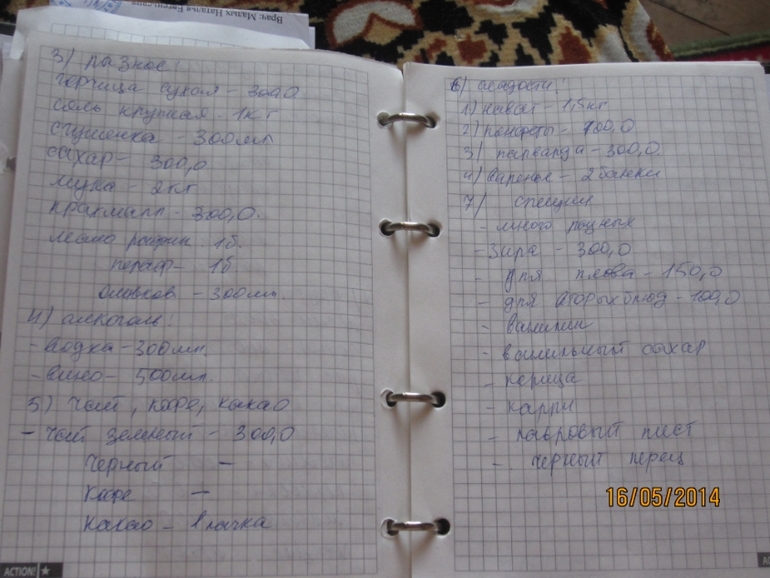 Врач: Малых Наталья Евгеньевна
3) разное:
горчица сухая - 300,0
соль крупная - 1кг
сгущенка - 300мл
сахар - 300,0
мука - 2кг
крахмалл - 300,0.
масло рафин. 1б.
нераф - 1б.
оливков - 300мл.
4) алкоголь:
- водка - 300мл.
- вино - 500мл.
5) чай, кофе, какао
- чай зеленый - 300,0
черный -
кофе -
какао - 1 пачка
ACTION!
6) сладости:
1) нават - 1,5кг
2) конфеты - 700,0
3) парварда - 300,0.
4) варенье - 2 банки
7) специи
- много разных
- зира - 300,0
- для плова - 150,0
- для вторых блюд - 100,0
- ванилин
- ванильный сахар
- корица
- карри
- лавровый лист
- черный перец
16/05/2014